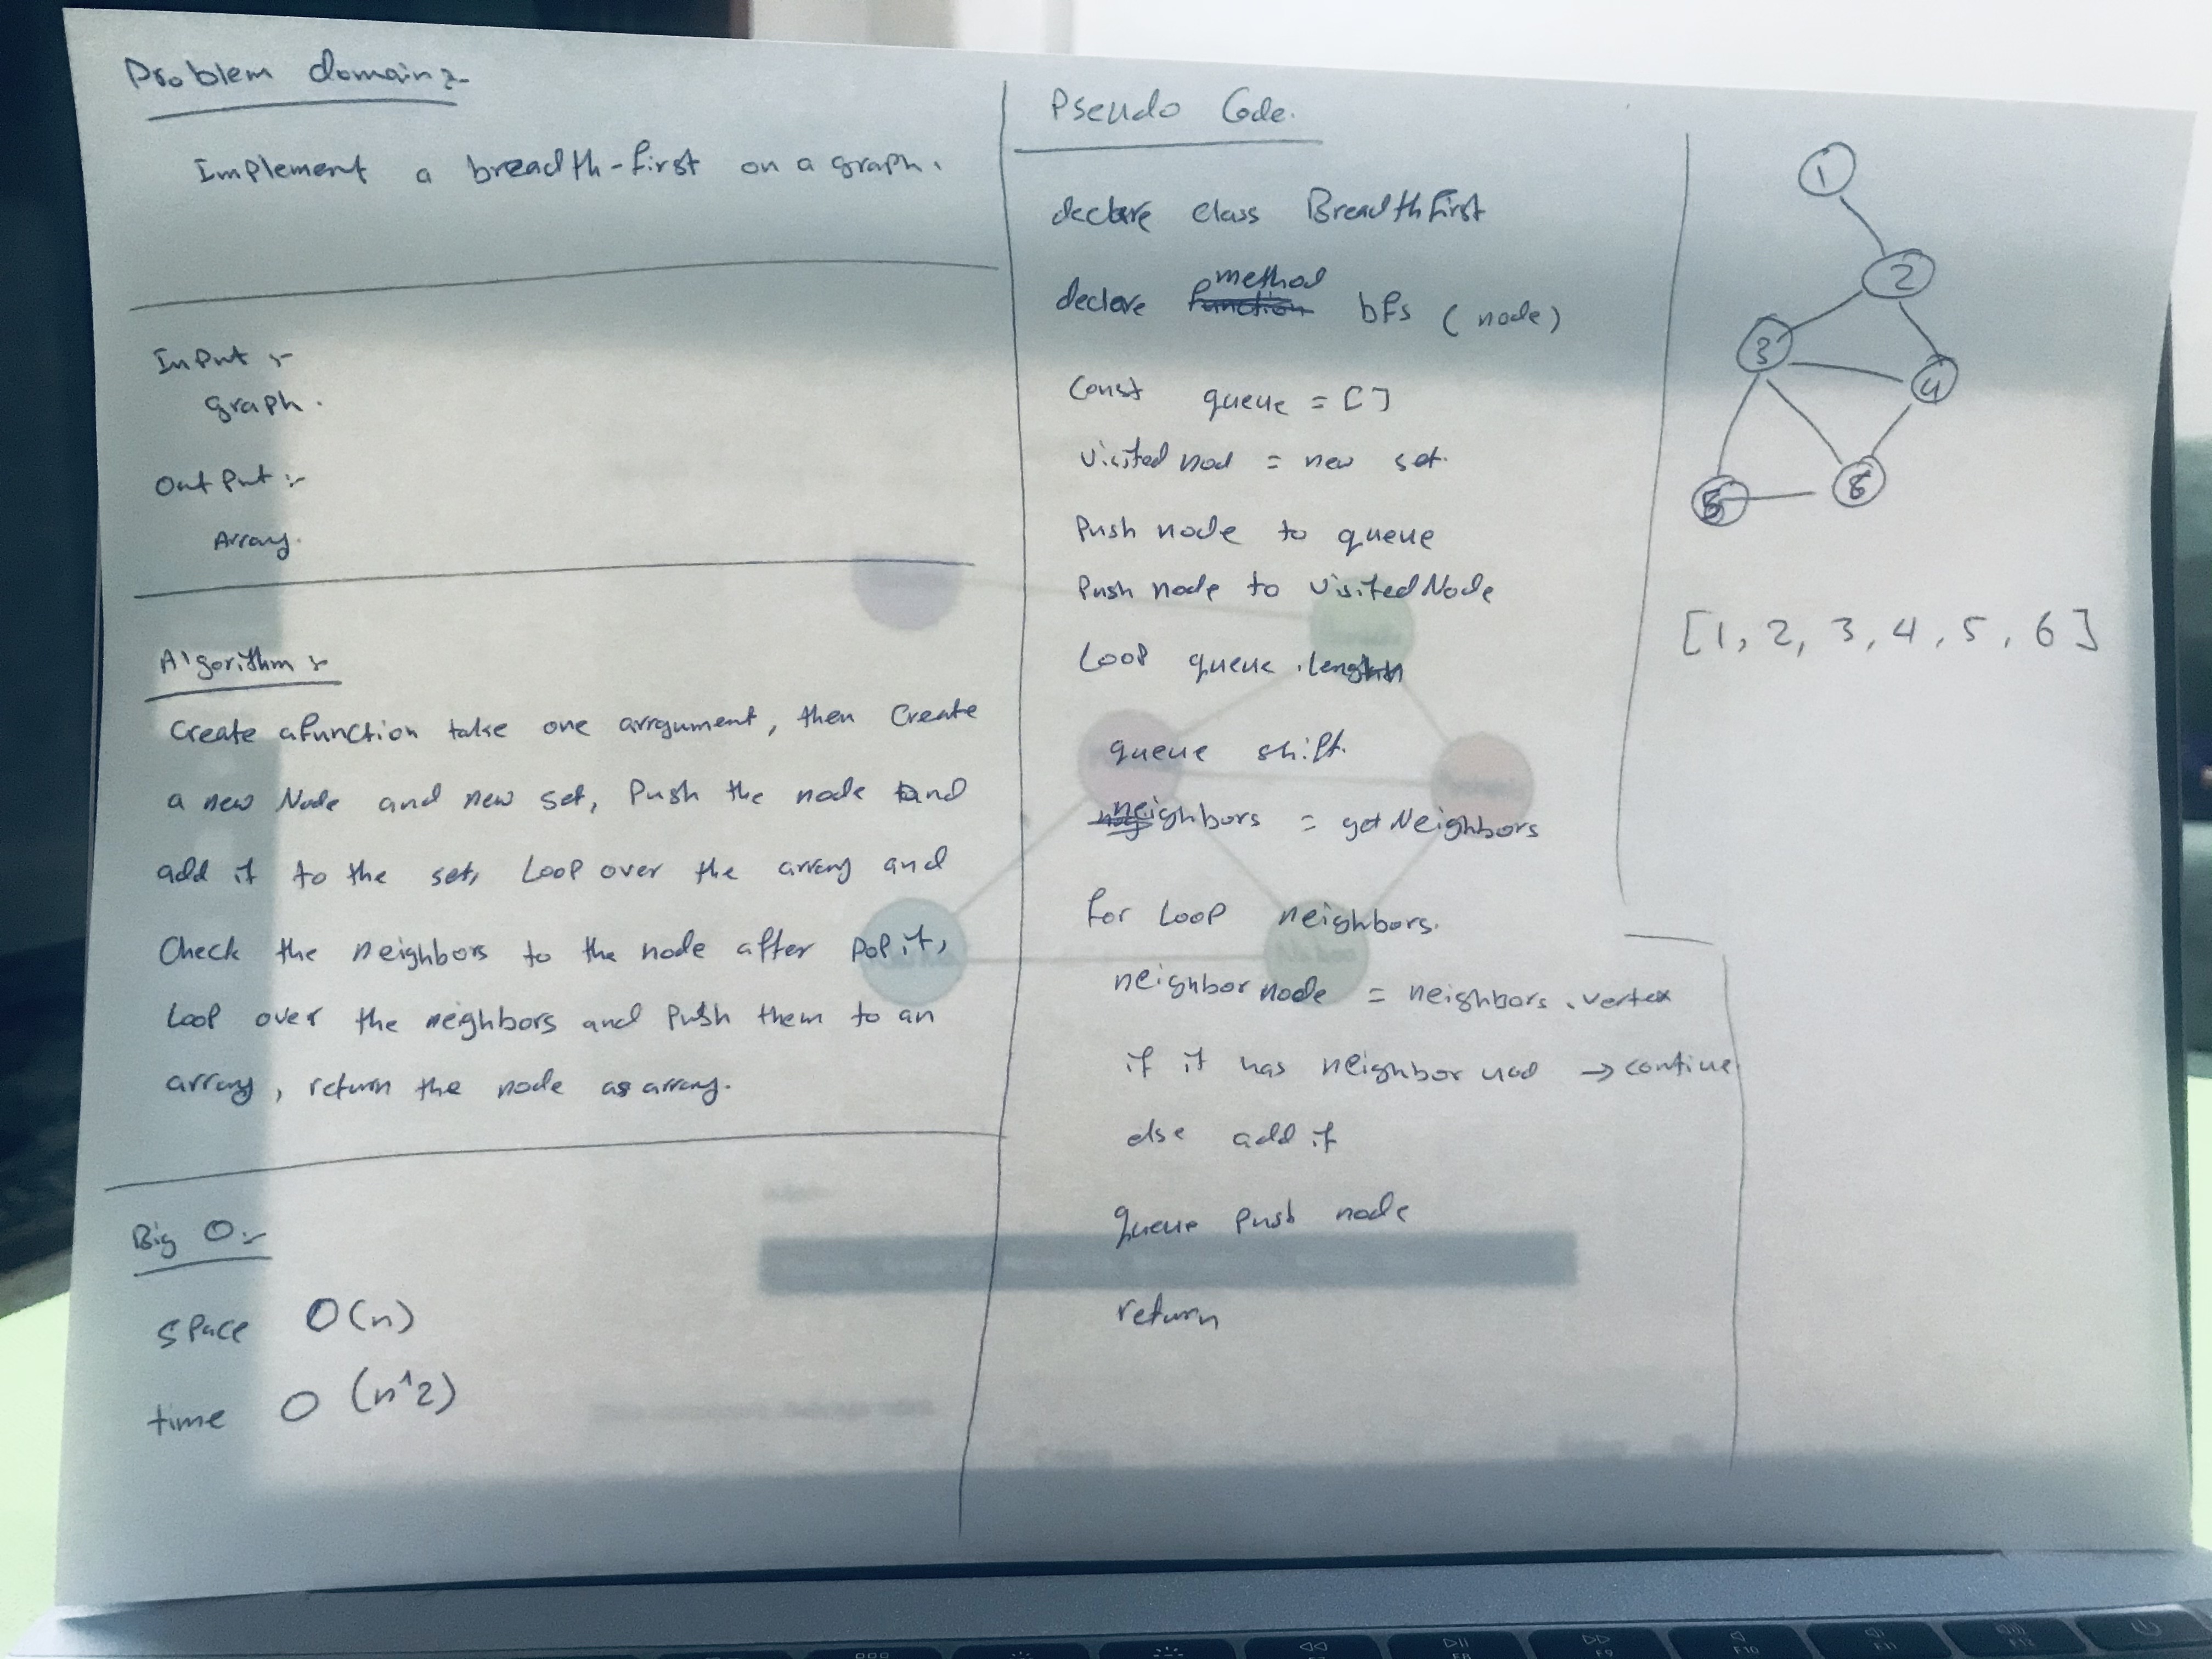 Problem domain:-
Implement a breadth-first on a graph.
Input :-
graph.
Output :-
Array.
Algorithm :-
Create a function take one arrgument, then Create
a new Node and new set, Push the node and
add it to the set, Loop over the array and
Check the neighbors to the node after pop it,
Loop over the neighbors and Push them to an
array, return the node as array.
Big O:-
space O(n)
time O (n^2)
Pseudo Code.
declare class BreadthFirst
declare method bfs (node)
Const queue = []
visited nod = new set.
Push node to queue
Push node to visitedNode
Loop queue.length
queue shift.
neighbors = getNeighbors
for Loop neighbors.
neighbor node = neighbors.vertex
if it has neighbor nod → contiue
else add it
queue Push node
return
1
2
3
4
5
6
[1, 2, 3, 4, 5, 6]
F9
F10
F11
F12